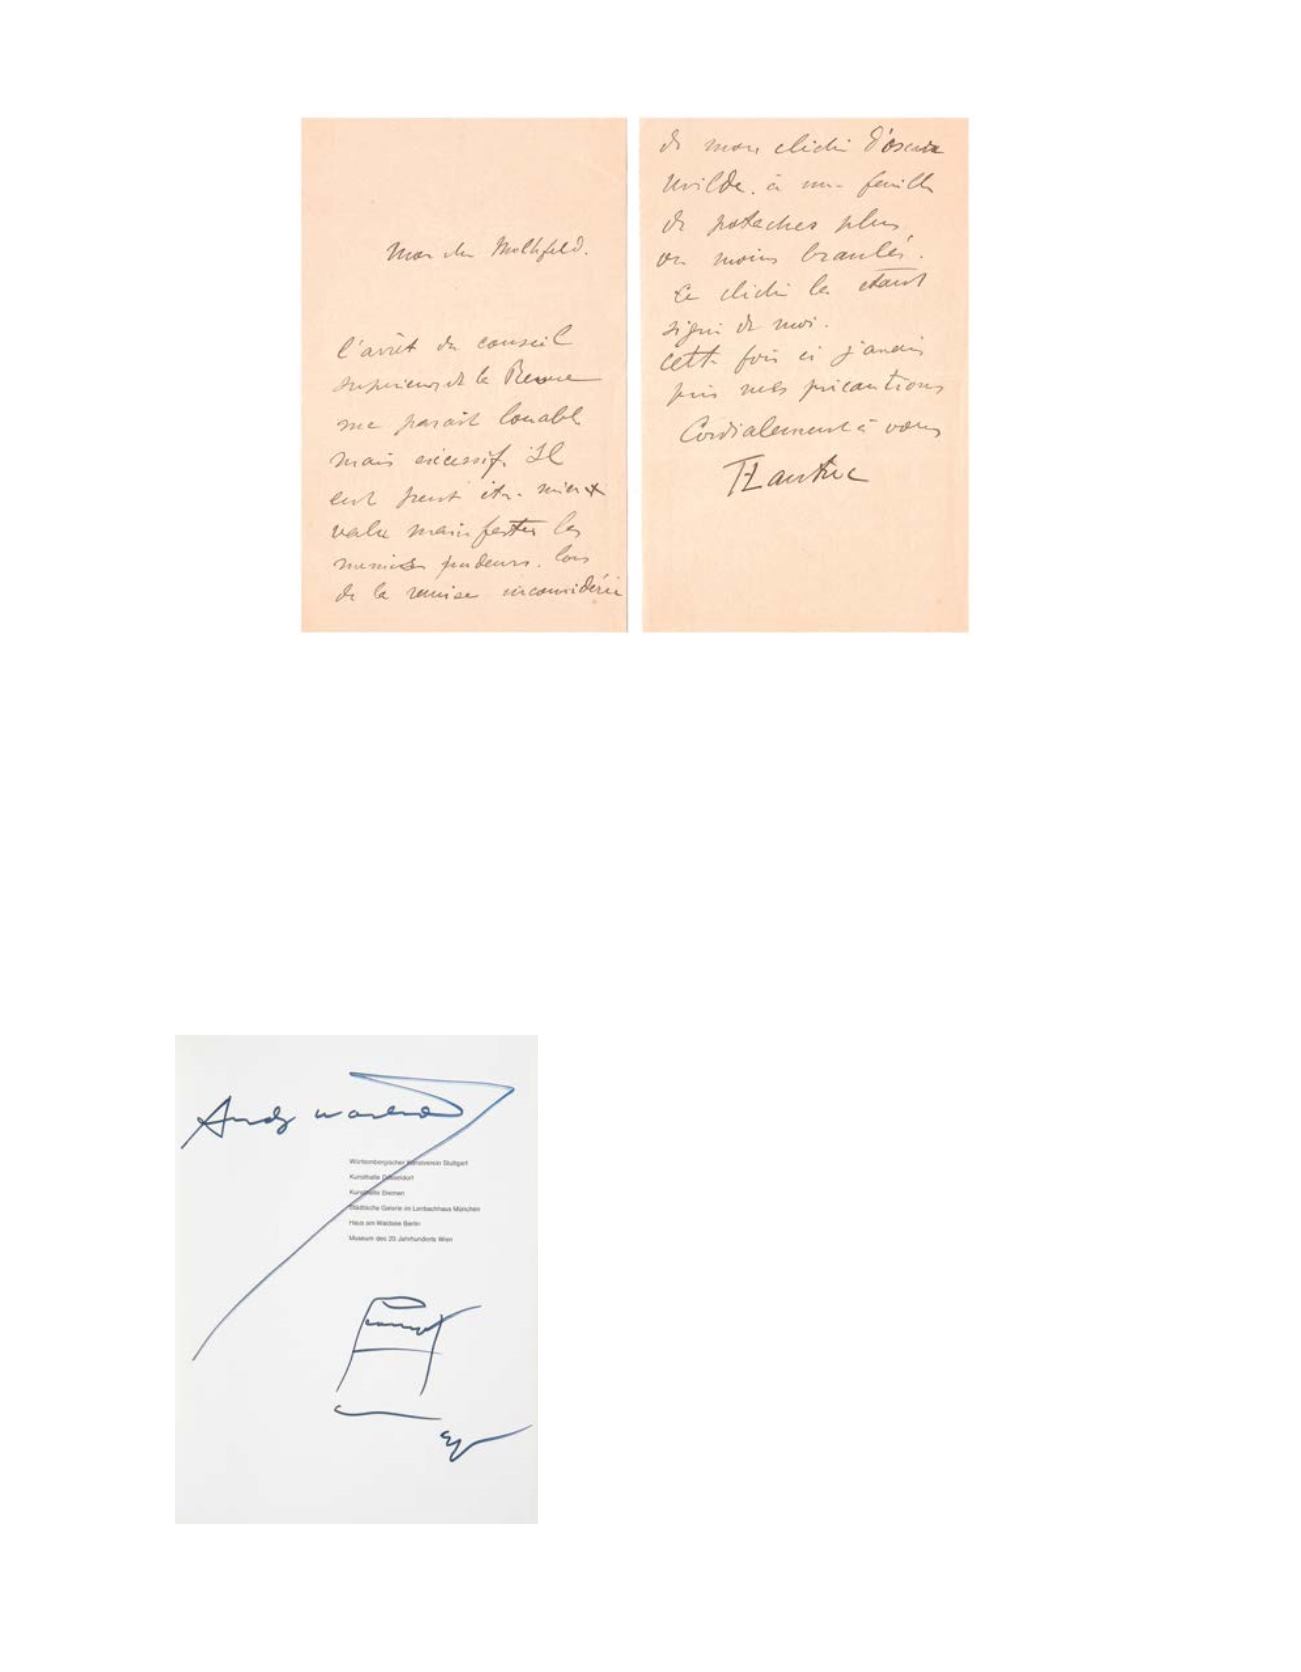 Mon cher Molhfeld.
l'arrêt du conseil
superieur de la Revue
me parait louable
mais excessif. Il
eut peut etre mieux
valu manifester les
memes pudeurs. lors
de la remise inconsidérée
de mon cliché d'oscar
Wilde. à une feuille
de potaches plus
ou moins branlés.
Le cliché les etant
signé de moi.
cette fois ci j'aurais
pris mes précautions
Cordialement à vous
TLautrec
Andy Warhol
Württembergischer Kunstverein Stuttgart
Kunsthalle Düsseldorf
Kunsthalle Bremen
Städtische Galerie im Lenbachhaus München
Haus am Waldsee Berlin
Museum des 20. Jahrhunderts Wien